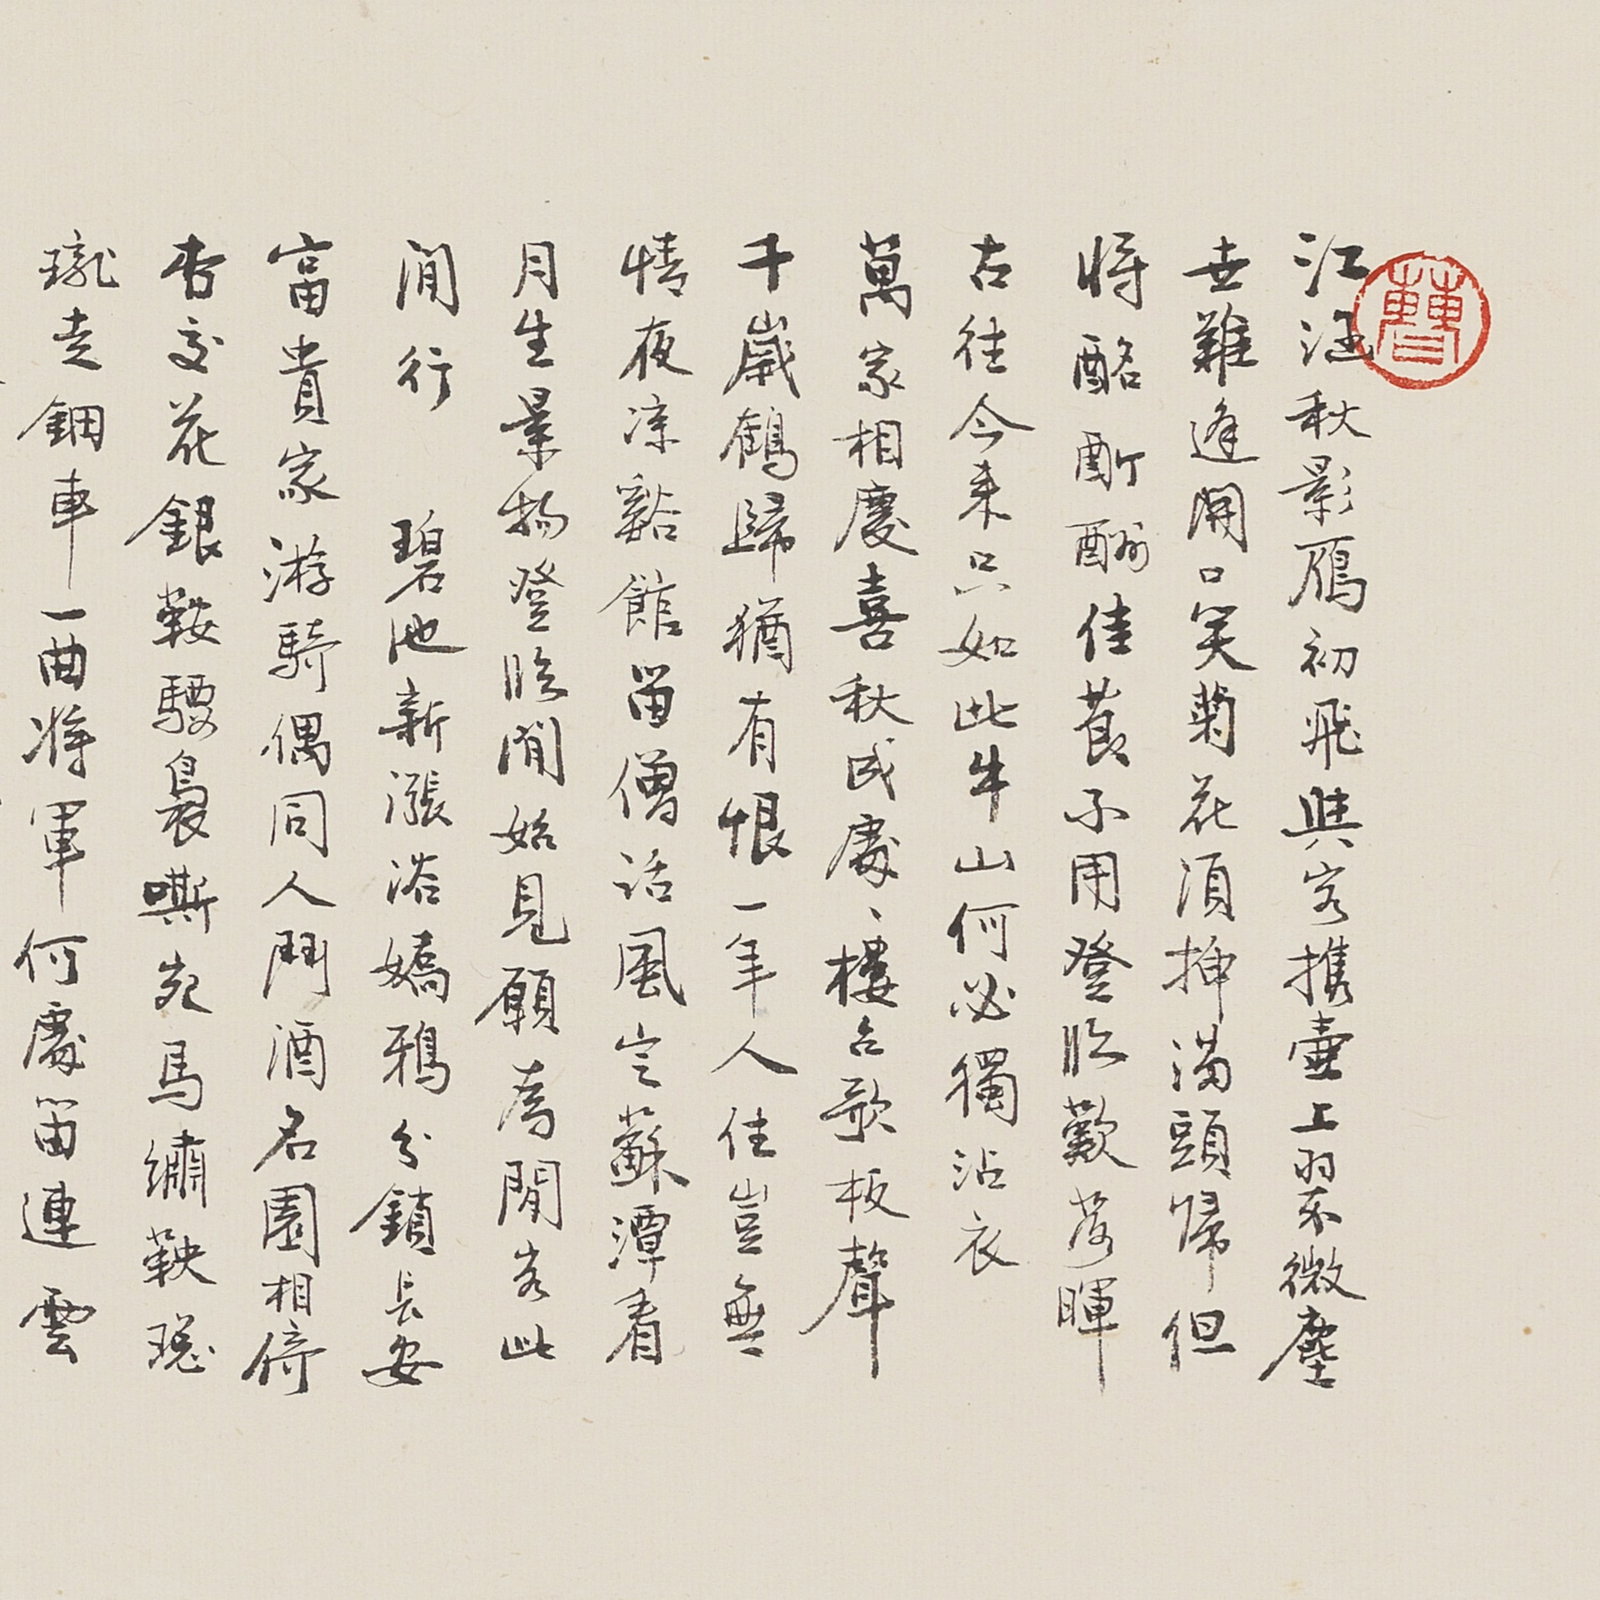 江涵秋影雁初飛與客攜壺上翠微塵
世難逢開口笑菊花須插滿頭歸但
將酩酊酬佳節不用登臨歎落暉
古往今來只如此牛山何必獨沾衣
萬家相慶喜秋成處、樓台歌板聲
千歲鶴歸猶有恨一年人住豈無
情夜涼谿館留僧話風定蘇潭看
月生景物登臨閒始見願為閒客此
閒行 碧池新漲浴嬌鴉分鎖長安
富貴家游騎偶同人鬥酒名園相倚
杏交花銀鞍騕褭嘶宛馬繡鞅璁
瓏走鈿車一曲將軍何處笛連雲